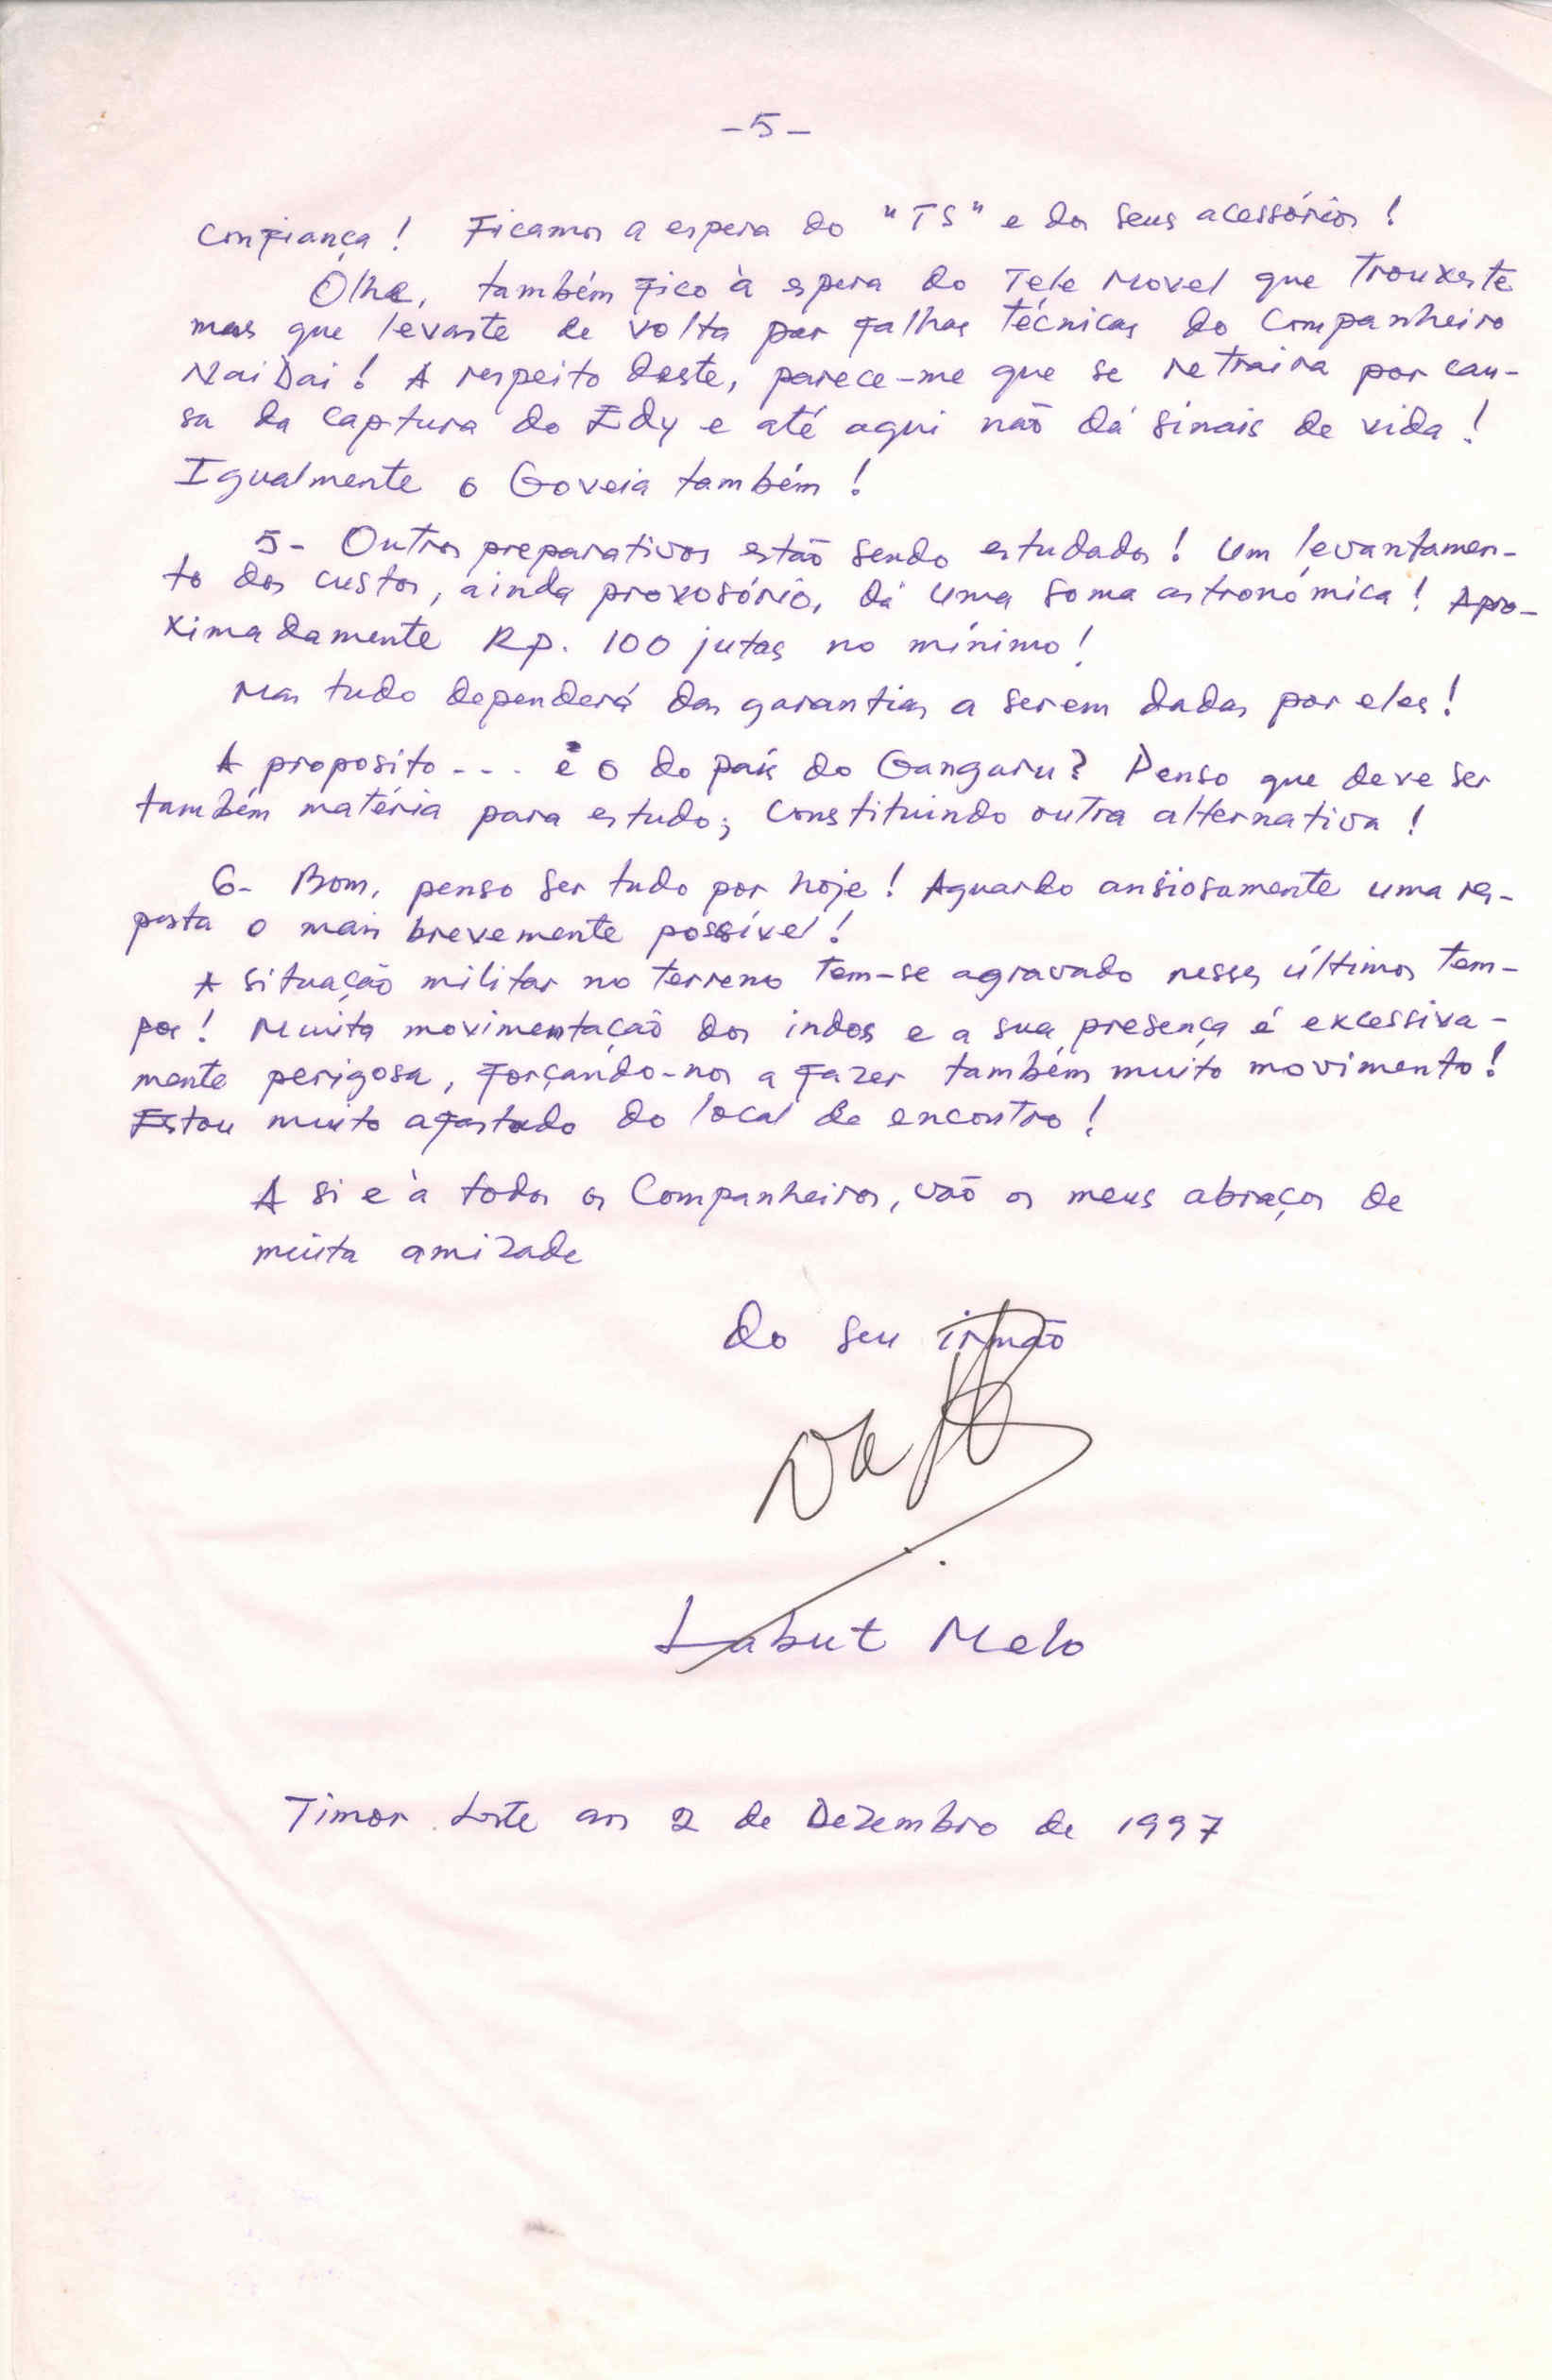 -5-
Confiança! Ficamos a espera do "TS" e dos seus acessórios!
Olhe, também fico à espera do Tele Movel que trouxeste
mas que levaste de volta por falhas técnicas do Companheiro
NaiDai! A respeito deste, parece-me que se retraira por cau-
sa da captura do Edy e até aqui não dá sinais de vida!
Igualmente o Goveia também!
5- Outros preparativos estão sendo estudados! Um levantamen-
to dos custos, ainda provosório, dá uma soma astronómica! Apro-
ximadamente Rp. 100 jutas no mínimo!
Mas tudo dependerá das garantias a serem dadas por eles!
A proposito... e o do país do Ganguru? Penso que deve ser
também matéria para estudo; constituindo outra alternativa!
6- Bom, penso ser tudo por hoje! Aguardo ansiosamente uma res-
posta o mais brevemente possível!
A situação militar no terreno tem-se agravado nesses últimos tem-
pos! Muita movimentação dos indos e a sua presença é excessiva-
mente perigosa, forçando-nos a fazer também muito movimento!
Estou muito afastado do local de encontro!
A si e à todos os Companheiros, vão os meus abraços de
muita amizade
do seu irmão
Labut Melo
Timor Leste aos 2 de Dezembro de 1997